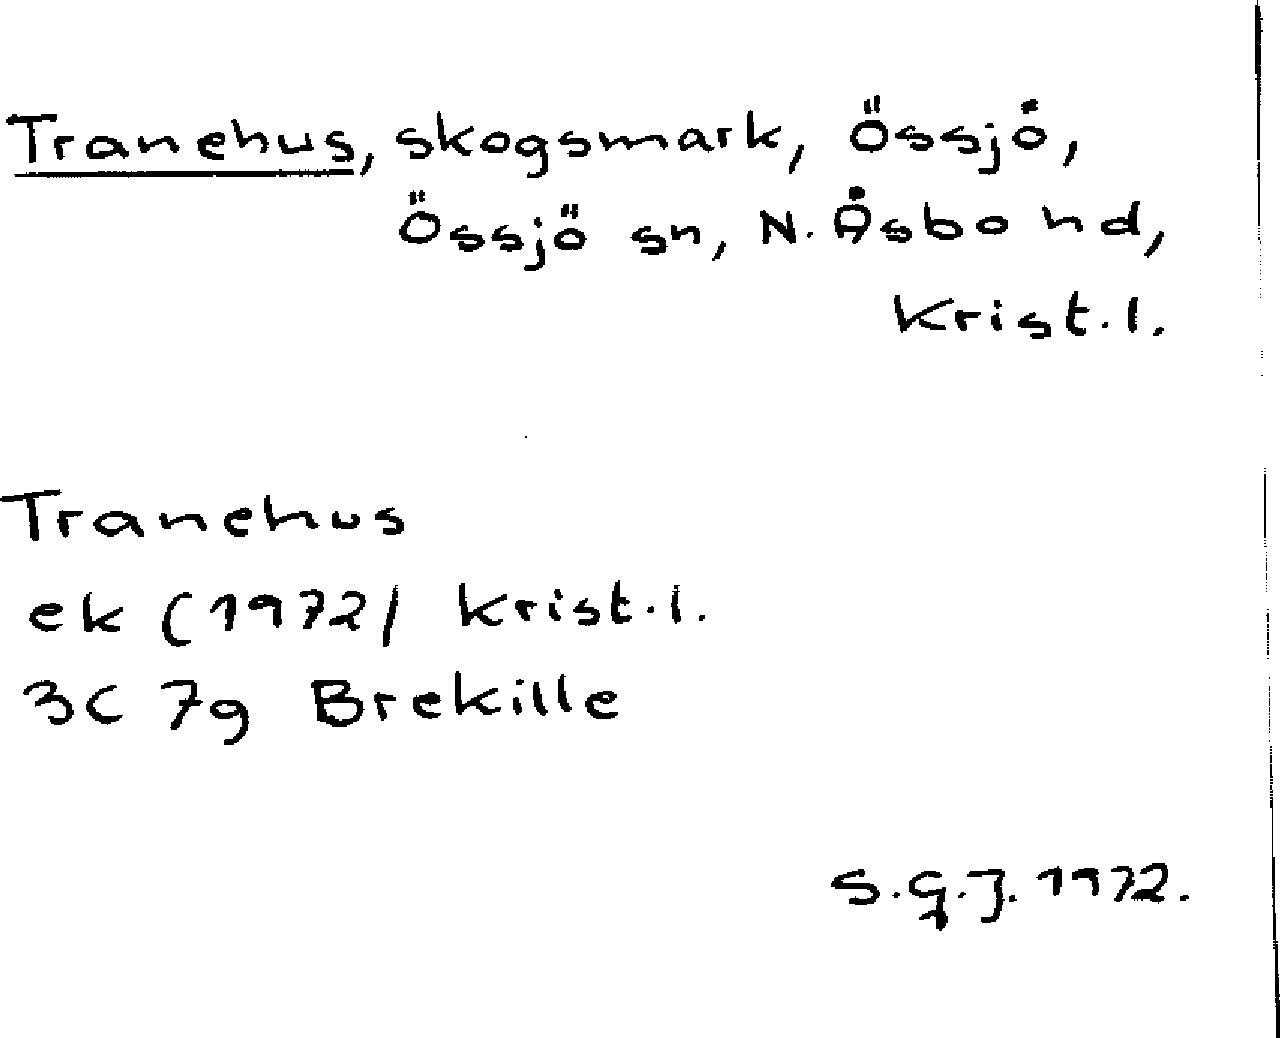 Tranehus, skogsmark, Össjö,
Össjö sn, N. Åsbo hd,
Krist. l.
Tranehus
ek (1972) Krist. l.
3C 7g Brekille
S.G.J. 1972.